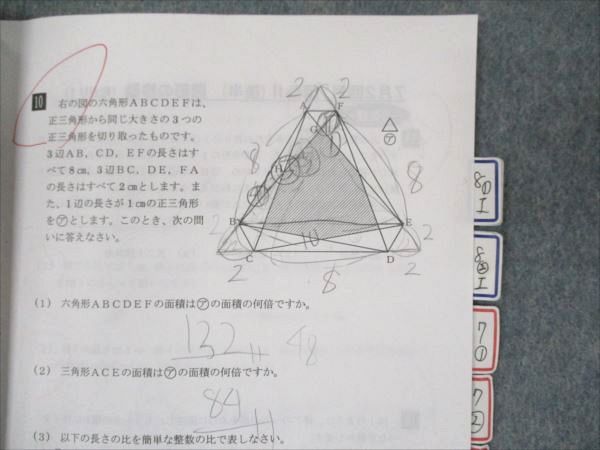 10 右の図の六角形ABCDEFは、
正三角形から同じ大きさの3つの
正三角形を切り取ったものです。
3辺AB,CD,EFの長さはす
べて8cm,3辺BC,DE,FA
の長さはすべて2cmとします。ま
た,1辺の長さが1cmの正三角形
を㋐とします。このとき、次の問
いに答えなさい。
2 2
A F
G
㋐
8 H 8
B E
2 10 2
C D
2 8 2
(1) 六角形ABCDEFの面積は㋐の面積の何倍ですか。
132 48
(2) 三角形ACEの面積は㋐の面積の何倍ですか。
84
(3) 以下の長さの比を簡単な整数の比で表しなさい。
8① I
8② I
7 ①
7 ②